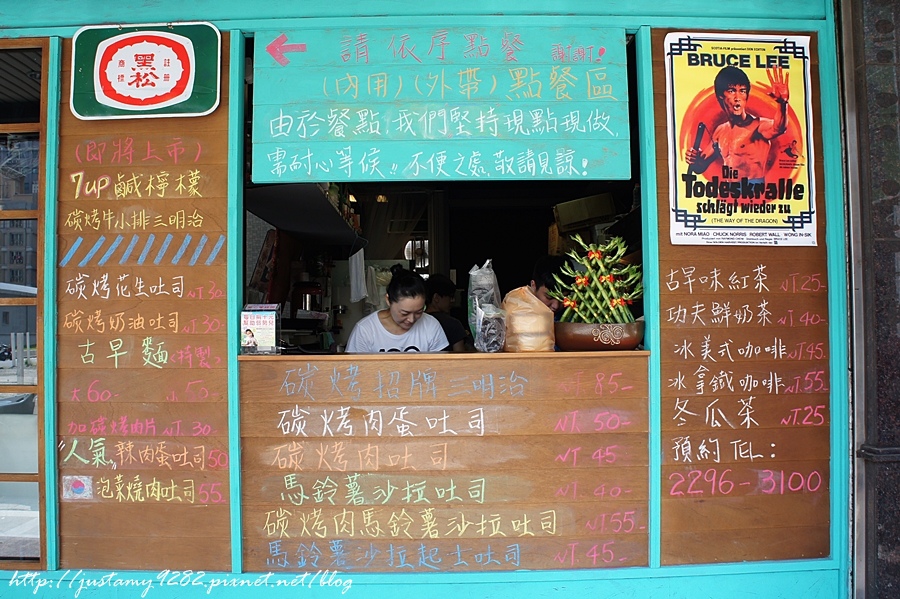 商標
黑松
註冊
(即將上市)
7up 鹹檸檬
碳烤牛小排三明治
碳烤花生吐司 NT30-
碳烤奶油吐司 NT30-
古早麵(特製)
大60- 小50-
加碳烤肉片 NT.30-
人氣 辣肉蛋吐司50
泡菜燒肉吐司55-
請依序點餐 謝謝!
(內用)(外帶)點餐區
由於餐點,我們堅持現點現做,
需耐心等候,,不便之處,敬請見諒!
碳烤招牌三明治 NT 85-
碳烤肉蛋吐司 NT. 50-
碳烤肉吐司 NT 45-
馬鈴薯沙拉吐司 NT. 40-
碳烤肉馬鈴薯沙拉吐司 NT55-
馬鈴薯沙拉起士吐司 NT. 45-
BRUCE LEE
Die
Todeskralle
schlägt wieder zu
(THE WAY OF THE DRAGON)
mit NORA MIAO, CHUCK NORRIS, ROBERT WALL, WONG IN-SIK
古早味紅茶 NT25-
功夫鮮奶茶 NT 40-
冰美式咖啡 NT45-
冰拿鐵咖啡 NT.55-
冬瓜茶 NT25
預約TEL:
2296-3100
http://justamy9282.pixnet.net/blog